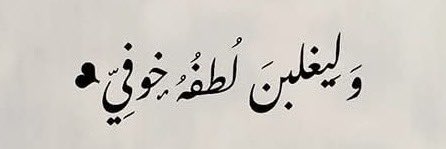 وَلِيغلبنَ لُطفُهُ خوفِيّ